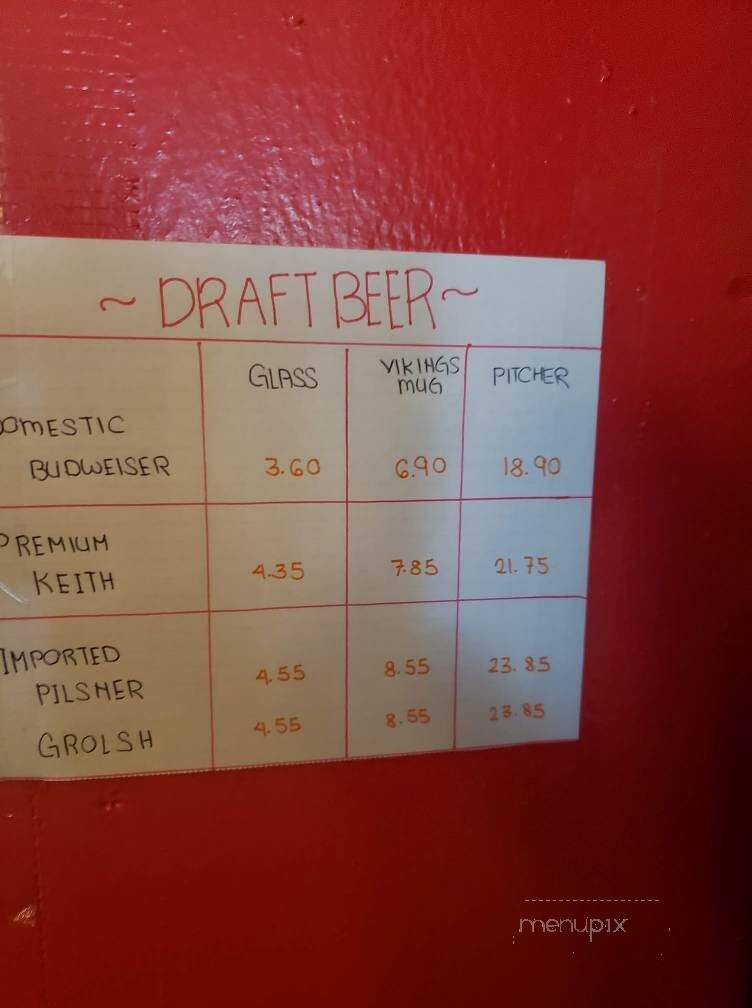 ~ DRAFT BEER ~
GLASS VIKINGS MUG PITCHER
DOMESTIC
BUDWEISER 3.60 6.90 18.90
PREMIUM
KEITH 4.35 7.85 21.75
IMPORTED
PILSNER 4.55 8.55 23.85
GROLSH 4.55 8.55 23.85
menupix